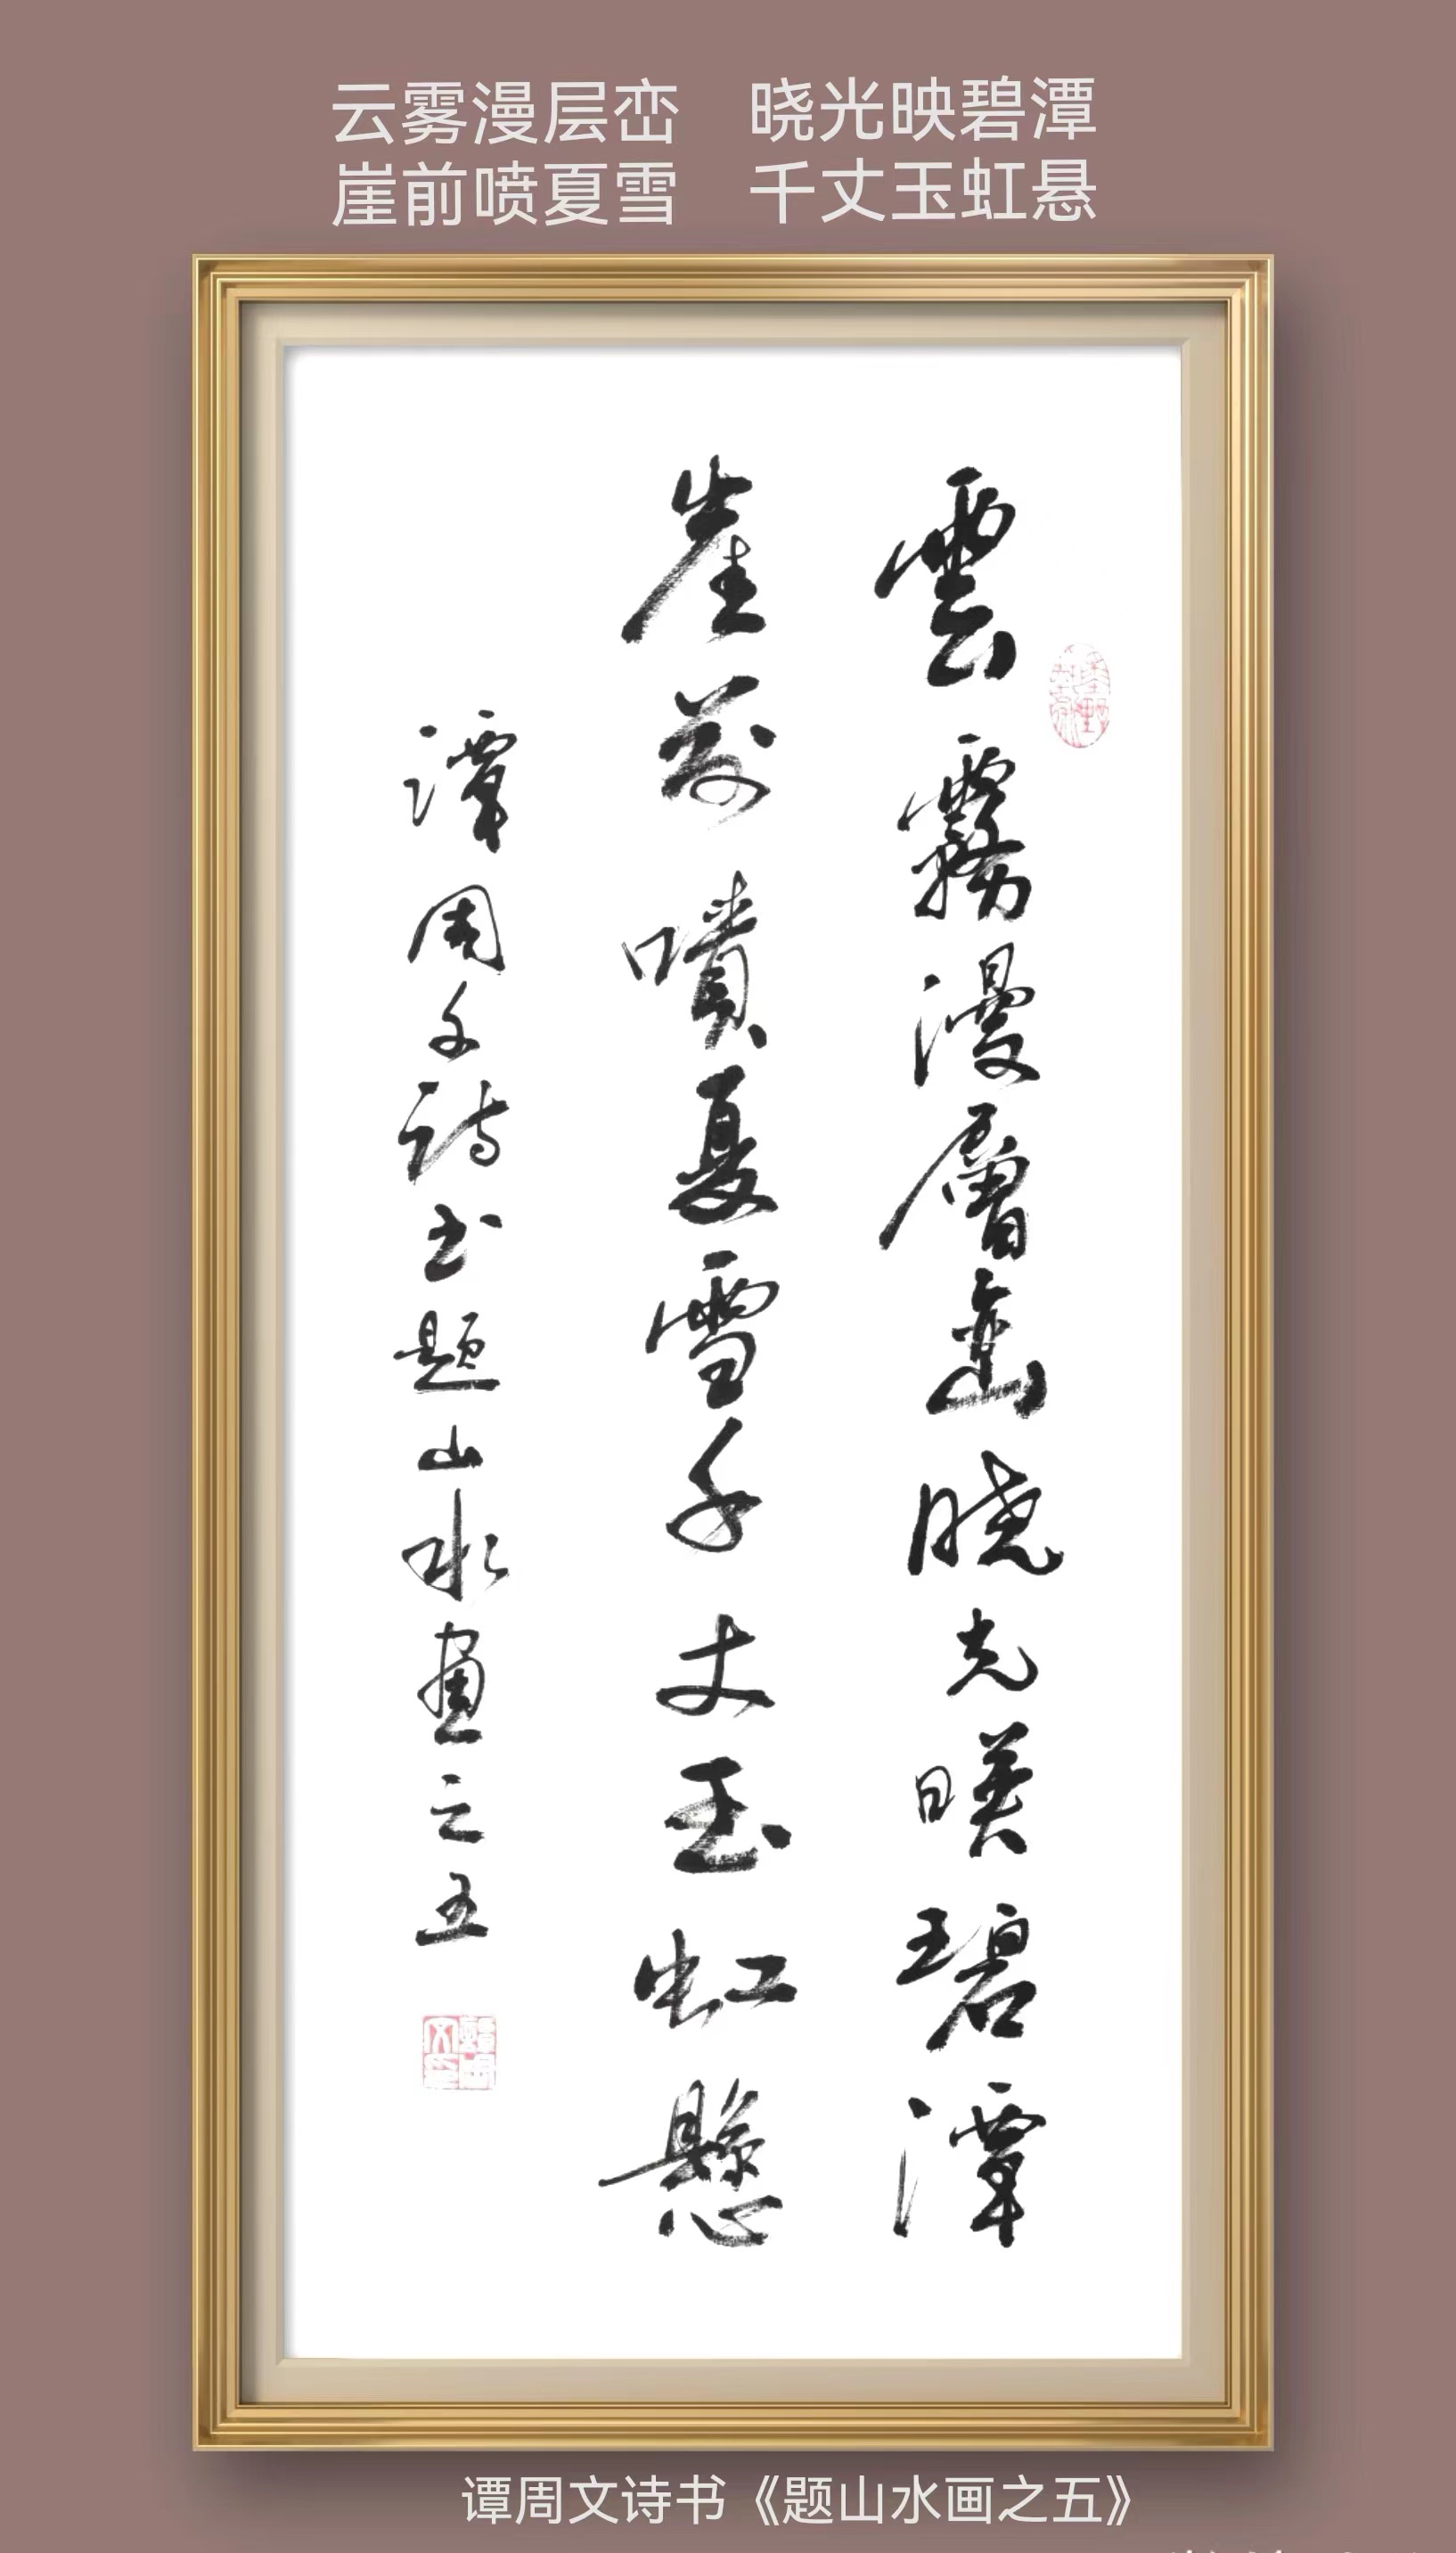 云雾漫层峦 晓光映碧潭
崖前喷夏雪 千丈玉虹悬
雲霧漫層巒晓光暎碧潭
崖前噴夏雪千丈玉虹懸
譚周文诗书题山水畫之五
谭周文诗书《题山水画之五》